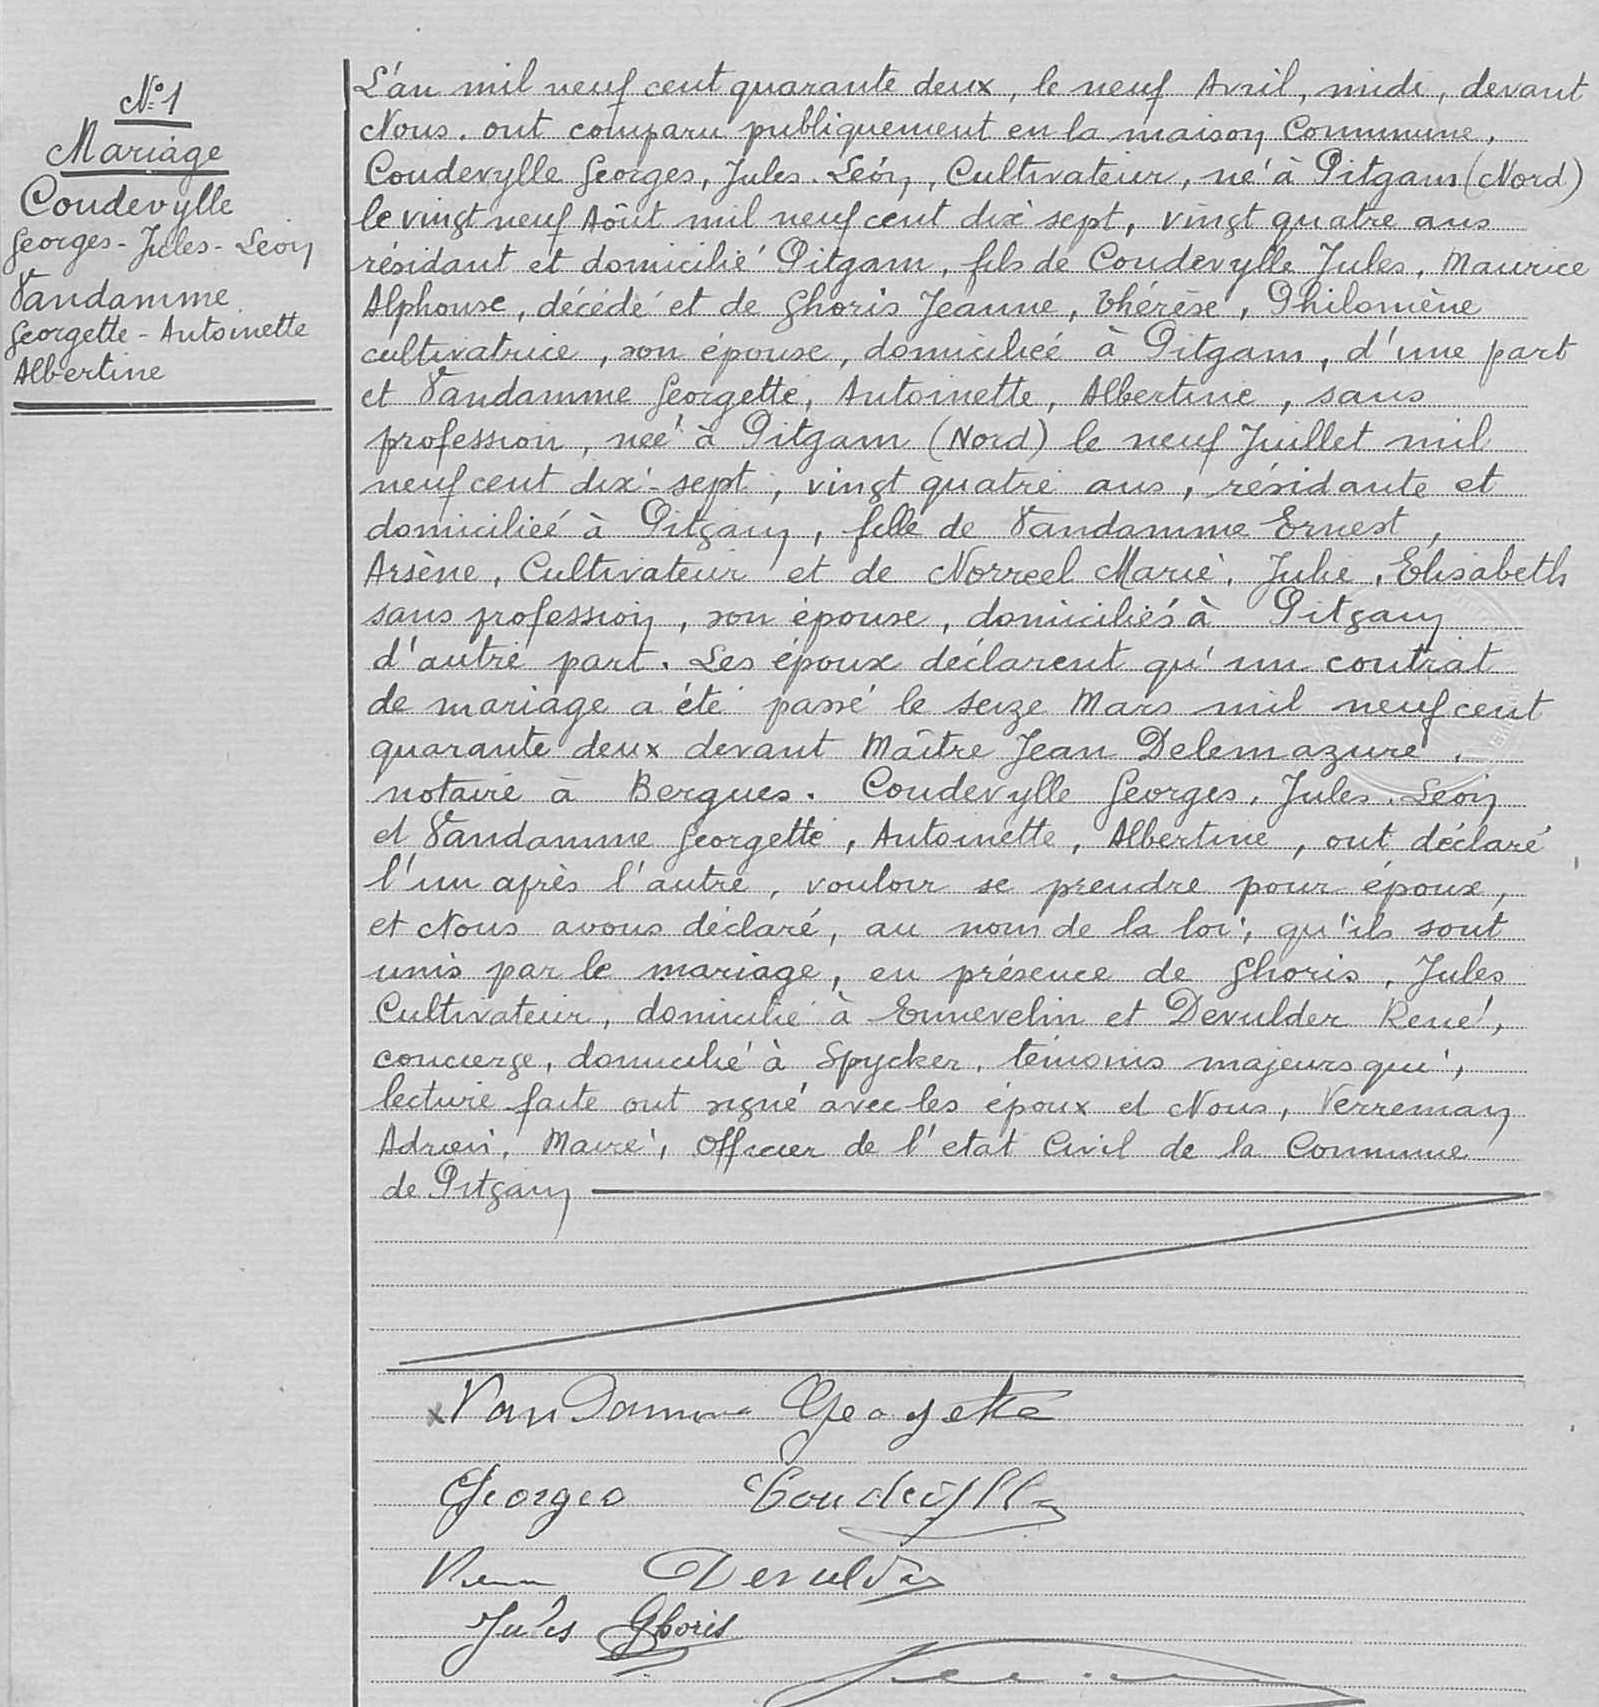 N° 1
Mariage
Coudevylle
Georges - Jules - Léon
Vandamme
Georgette - Antoinette
Albertine
L'an mil neuf cent quarante deux, le neuf Avril, midi, devant
Nous. ont comparu publiquement en la maison Commune,
Coudevylle Georges, Jules. Léon, Cultivateur, né à Pitgam (Nord)
le vingt neuf Août mil neuf cent dix sept, vingt quatre ans
résidant et domicilié Pitgam, fils de Coudevylle Jules, Maurice
Alphonse, décédé et de Ghoris Jeanne, Thérèse, Philomène
cultivatrice, son épouse, domiciliée à Pitgam, d'une part
et Vandamme Georgette, Antoinette, Albertine, sans
profession, née à Pitgam (Nord) le neuf Juillet mil
neuf cent dix-sept, vingt quatre ans, résidante et
domiciliée à Pitgam, fille de Vandamme Ernest,
Arsène, Cultivateur et de Norreel Marie, Julie, Elisabeth
sans profession, son épouse, domiciliés à Pitgam
d'autre part. Les époux déclarent qu'un contrat
de mariage a été passé le seize Mars mil neuf cent
quarante deux devant Maître Jean Delemazure,
notaire à Bergues. Coudevylle Georges, Jules, Léon
et Vandamme Georgette, Antoinette, Albertine, ont déclaré
l'un après l'autre, vouloir se prendre pour époux,
et Nous avons déclaré, au nom de la loi, qu'ils sont
unis par le mariage, en présence de Ghoris, Jules
Cultivateur, domicilié à Ennevelin et Devulder René,
concierge, domicilié à Spycker, témoins majeurs qui,
lecture faite ont signé avec les époux et Nous, Verreman
Adrien, Maire, Officier de l'état Civil de la Commune
de Pitgam
VanDamme Georgette
Georges Coudevylle
Devulder
Jules Ghoris